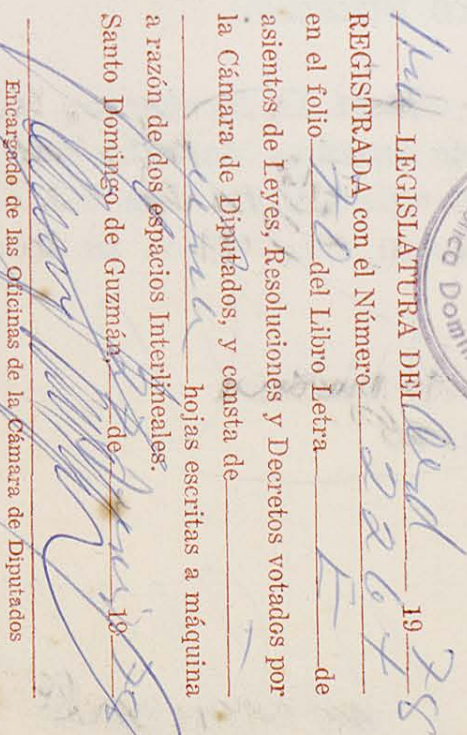 LEGISLATURA DEL Ord 1978
REGISTRADA con el Número 2264
en el folio 70 del Libro Letra E de
asientos de Leyes, Resoluciones y Decretos votados por
la Cámara de Diputados, y consta de
hojas escritas a máquina
a razón de dos espacios Interlineales.
Santo Domingo de Guzmán, de 1978
Encargado de las Oficinas de la Cámara de Diputados